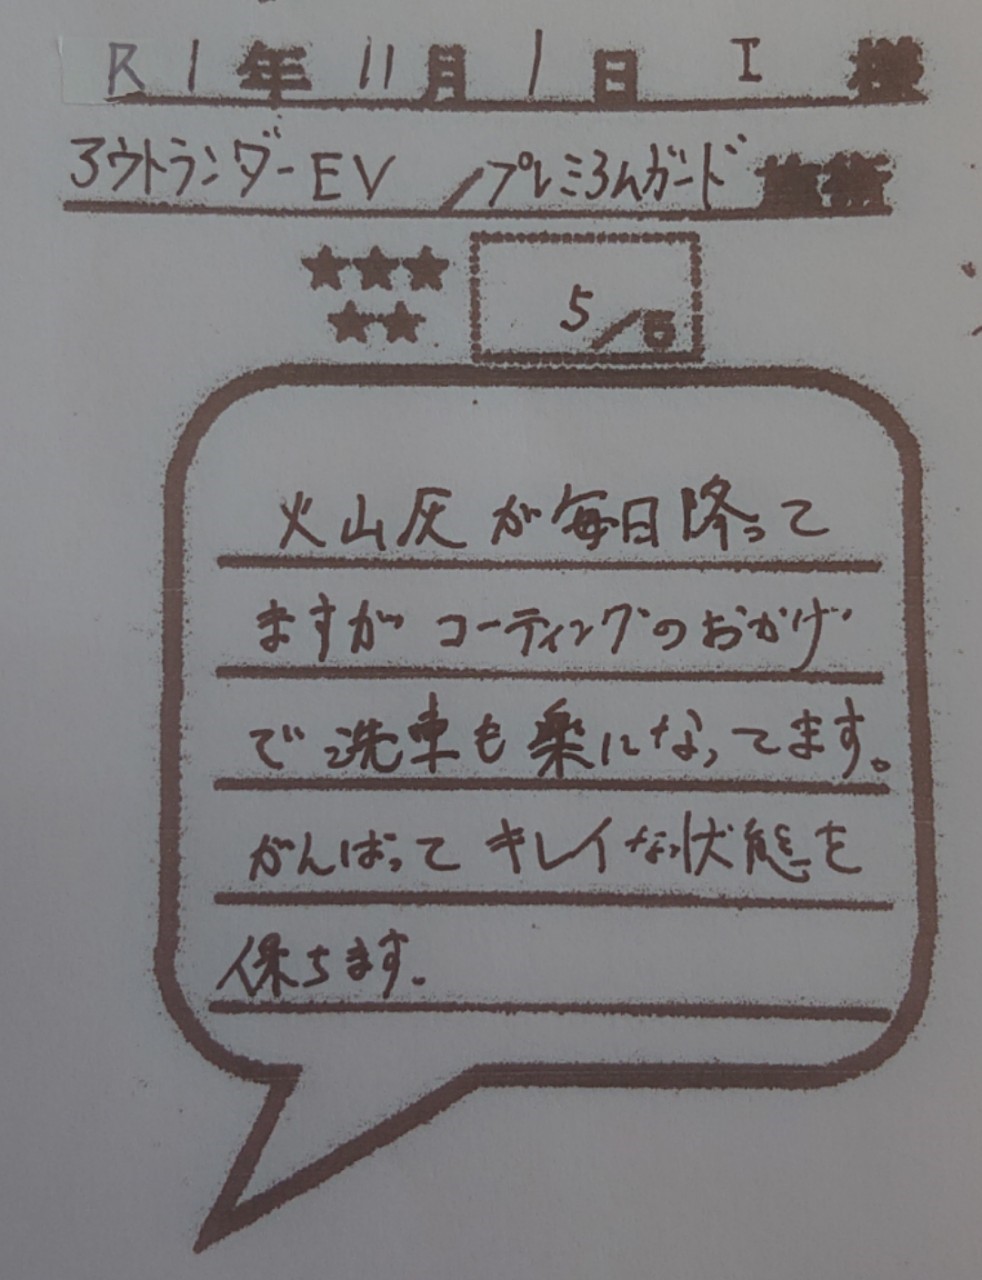 R1年11月1日 I 様
アウトランダーEV/プレミアムガード 施術
★★★
★★
5/5
火山灰が毎日降って
ますがコーティングのおかげ
で洗車も楽になってます。
がんばってキレイな状態を
保ちます。